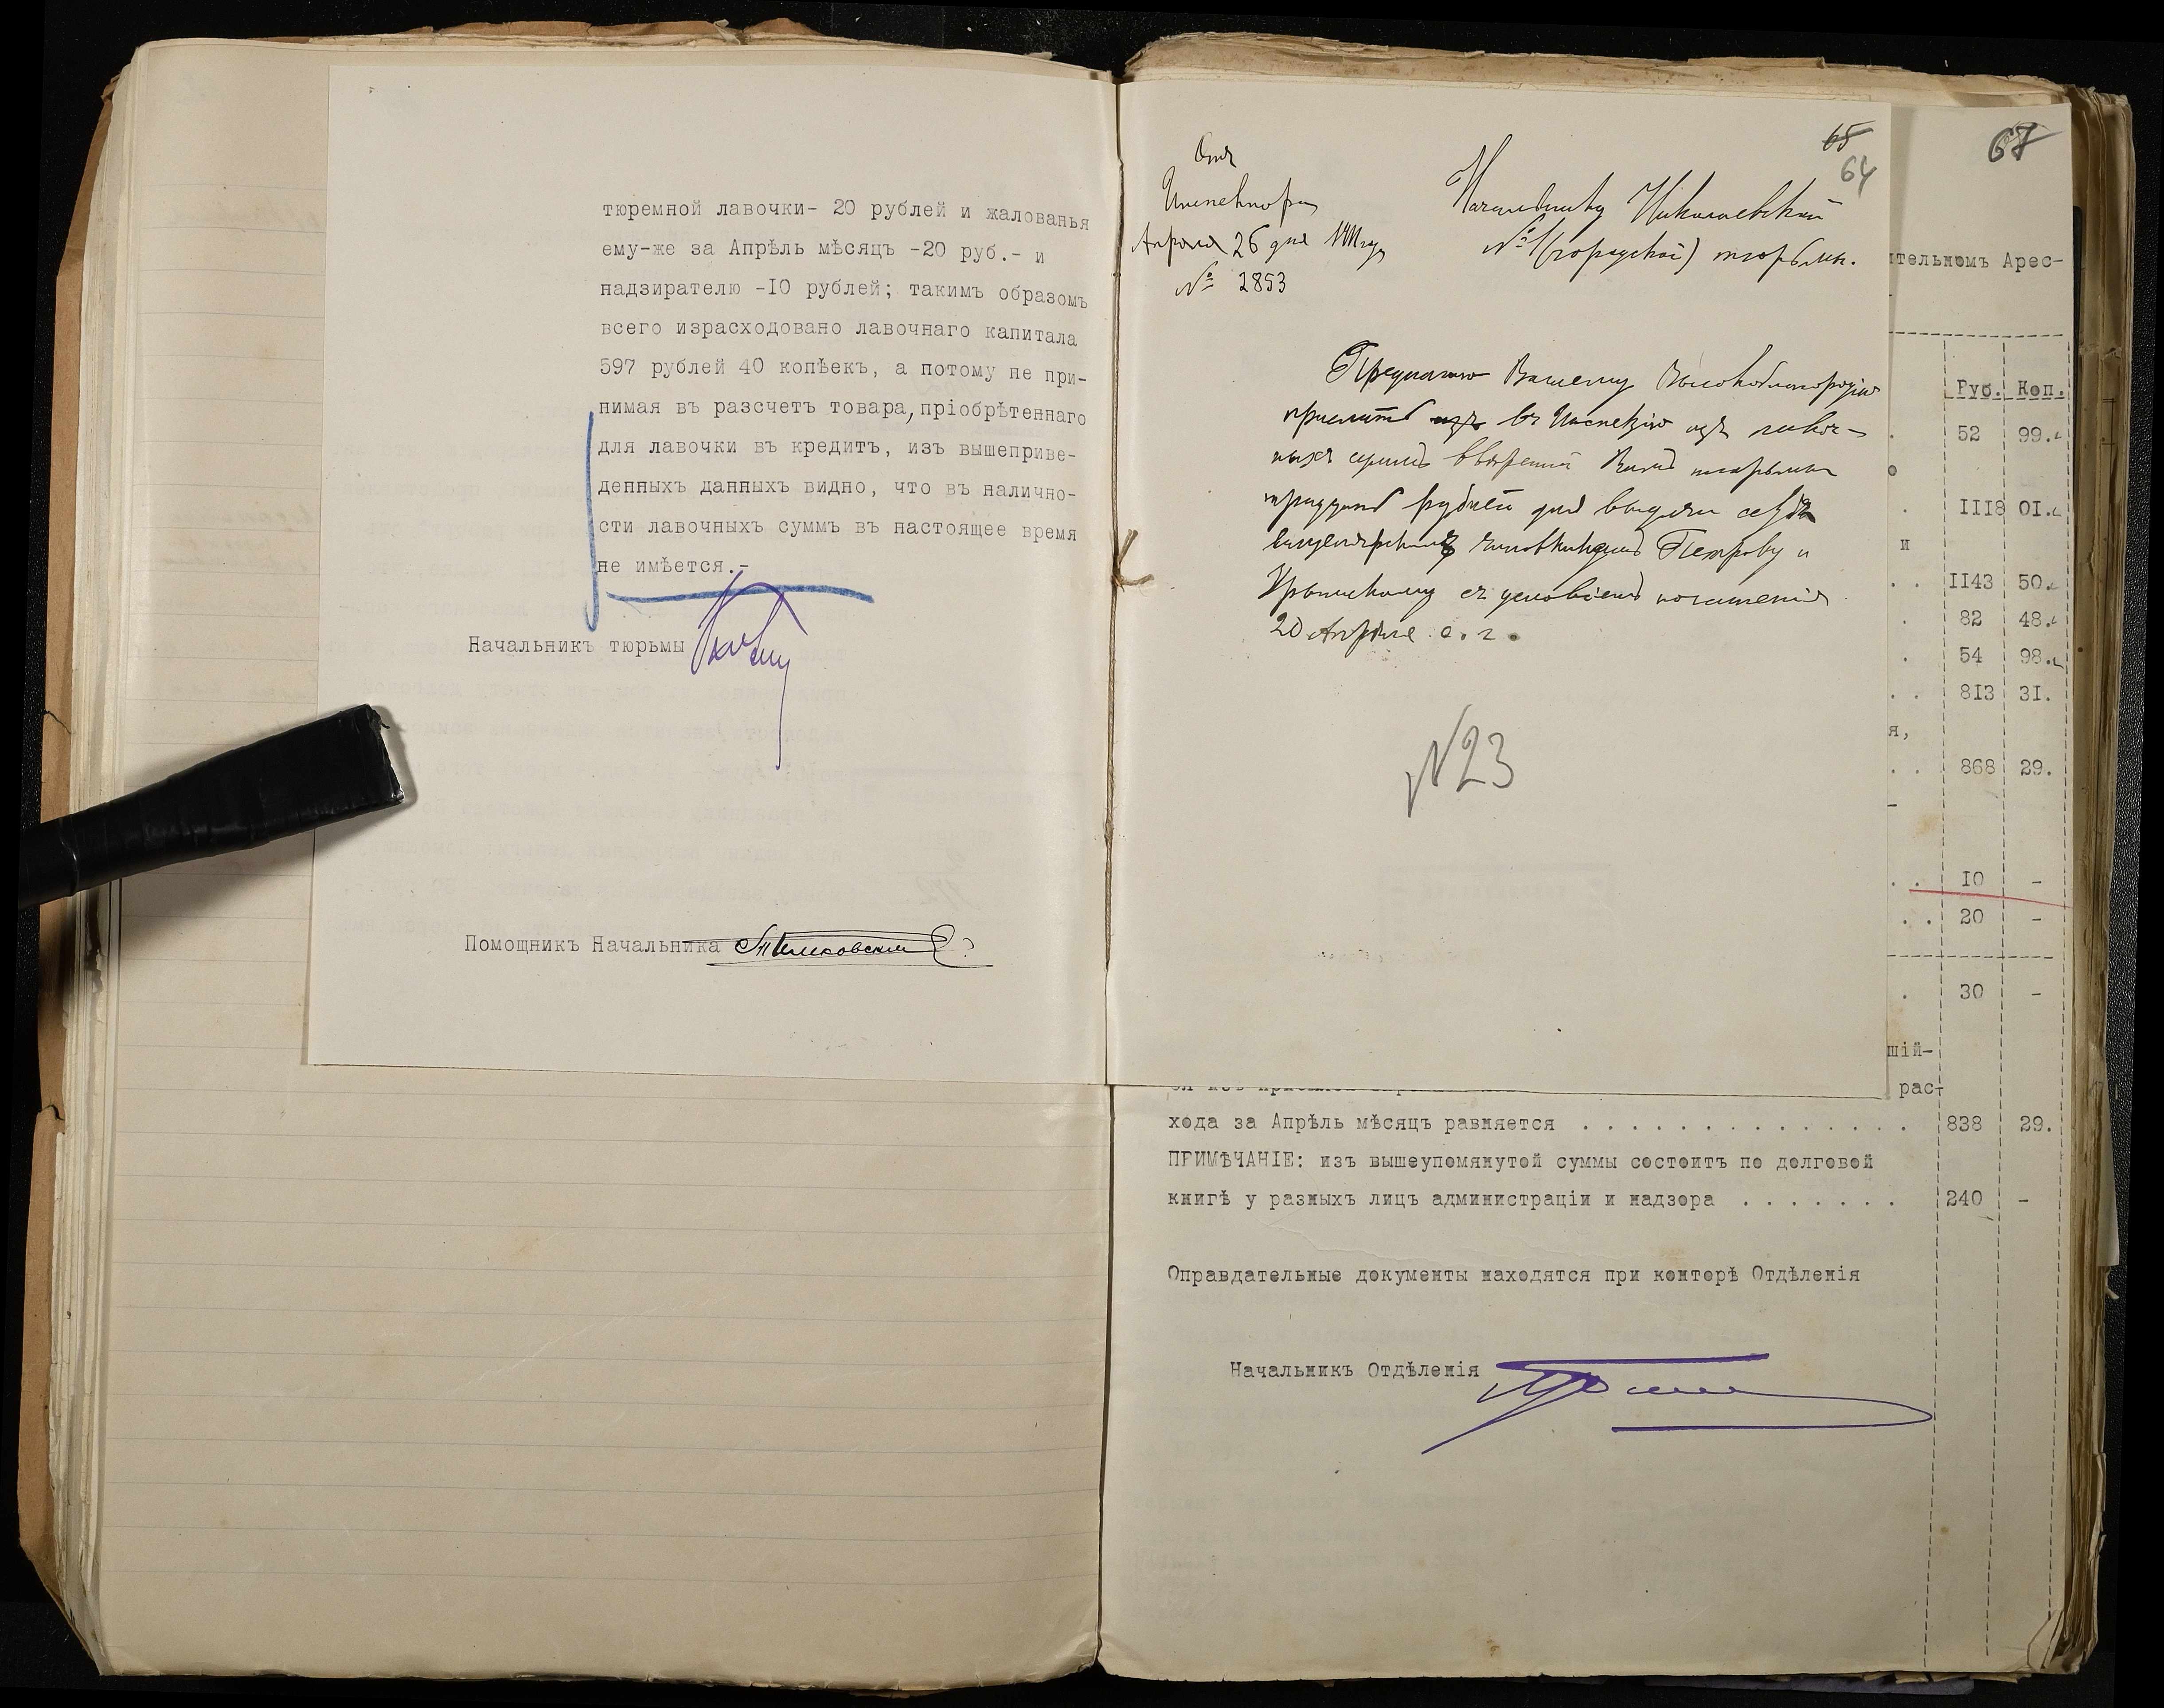 тюремной лавочки- 20 рублей и жалованья
ему-же за Апрѣль мѣсяцъ -20 руб.- и
надзирателю -IO рублей; такимъ образомъ
всего израсходовано лавочнаго капитала
597 рублей 40 копѣекъ, а потому не при-
нимая въ разсчетъ товара, пріобрѣтеннаго
для лавочки въ кредитъ, изъ вышеприве-
денныхъ данныхъ видно, что въ налично-
сти лавочныхъ суммъ въ настоящее время
не имѣется.-
Начальникъ тюрьмы
Помощникъ Начальника
65
64
Отъ
Инспектора
Апрѣля 26 дня 1911 года
№ 2853
Начальнику Николаевской
№1 (городской) тюрьмы.
Предлагаю Вашему Высокоблагородію
прислать изъ въ Инспекцію изъ лавоч-
ныхъ суммъ ввѣренной Вамъ тюрьмы
тридцать рублей для выдачи
канцелярскимъ чиновникамъ Петрову и
съ условіемъ погашенія
20 Апрѣля с. г.
№23
67
ительномъ Арес-
Руб. Коп.
52 99.
III8 OI.
и
II43 50.
82 48.
54 98.
8I3 3I.
я,
868 29.
IO -
20 -
30 -
шій-
рас-
хода за Апрѣль мѣсяцъ равняется . . . . . . . . . . . . . . 838 29.
ПРИМѢЧАНІЕ: изъ вышеупомянутой суммы состоитъ по долговой
книгѣ у разныхъ лицъ администраціи и надзора . . . . . . . 240 -
Оправдательные документы находятся при конторѣ Отдѣленія
Начальникъ Отдѣленія